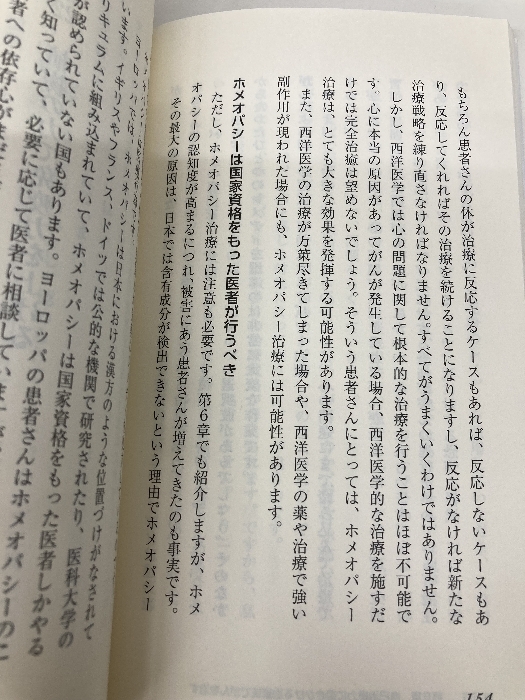 もちろん患者さんの体が治療に反応するケースもあれば、反応しないケースもあ
り、反応してくれればその治療を続けることになりますし、反応がなければ新たな
治療戦略を練り直さなければなりません。すべてがうまくいくわけではありません。
しかし、西洋医学では心の問題に関して根本的な治療を行うことはほぼ不可能で
す。心に本当の原因があってがんが発生している場合、西洋医学的な治療を施すだ
けでは完全治癒は望めないでしょう。そういう患者さんにとっては、ホメオパシー
治療は、とても大きな効果を発揮する可能性があります。
また、西洋医学の治療が万策尽きてしまった場合や、西洋医学の薬や治療で強い
副作用が現われた場合にも、ホメオパシー治療には可能性があります。
ホメオパシーは国家資格をもった医者が行うべき
ただし、ホメオパシー治療には注意も必要です。第6章でも紹介しますが、ホメ
オパシーの認知度が高まるにつれ、被害にあう患者さんが増えてきたのも事実です。
その最大の原因は、日本では含有成分が検出できないという理由でホメオパシー
154
ヨーロッパでは、ホメオパシーは日本における漢方のような位置づけがなされて
います。イギリスやフランス、ドイツでは公的な機関で研究されたり、医科大学の
リキュラムに組み込まれていて、ホメオパシーは国家資格をもった医者しかやる
が認められていない国もあります。ヨーロッパの患者さんはホメオパシーのこ
く知っていて、必要に応じて医者に相談しています
者への依存心が